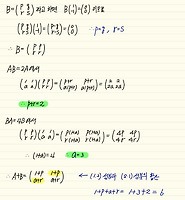 B=(p q / r s) 라고 하면 B(1 / -1)=(0 / 0) 이므로
(p q / r s)(1 / -1)=(p-q / r-s)=(0 / 0) ∴ p=q, r=s
∴ B=(p p / r r)
AB=2A에서
(1 1 / a a)(p p / r r)=(p+r p+r / a(p+r) a(p+r))=(2 2 / 2a 2a)
p+r=2
BA=4B에서
(p p / r r)(1 1 / a a)=(p(1+a) p(1+a) / r(1+a) r(1+a))=(4p 4p / 4r 4r)
∴ (1+a)=4 a=3
∴ A+B=(1+p 1+p / a+r a+r) ← (1,2) 성분과 (2,1) 성분의 합은
1+p+a+r = 1+3+2 = 6